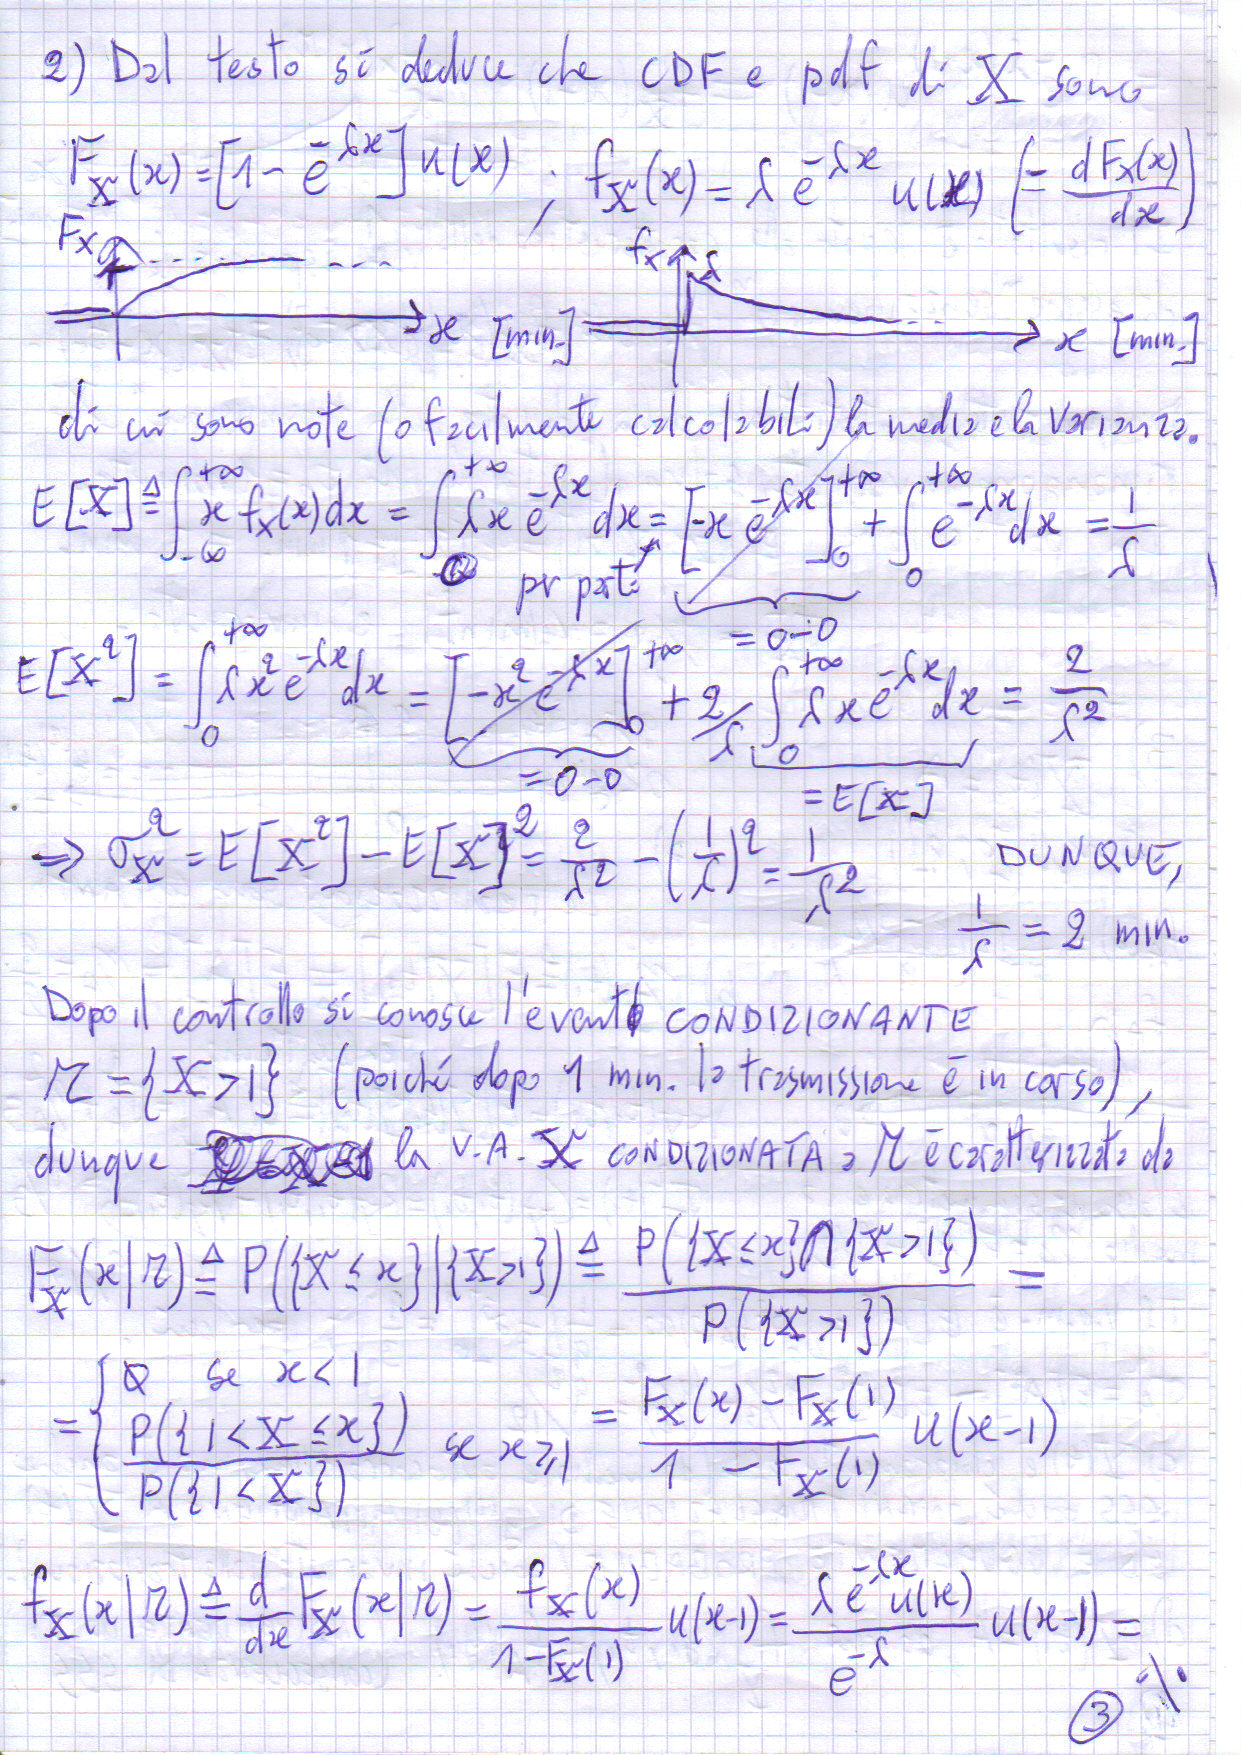 2) Dal testo si deduce che CDF e pdf di X sono
F_X(x) = [1 - e^{-λx}] u(x) ; f_X(x) = λ e^{-λx} u(x) (= dF_X(x)/dx)
F_X 1 x [min.] f_X λ x [min.]
di cui sono note (o facilmente calcolabili) la media e la varianza.
E[X] ≜ ∫_{-∞}^{+∞} x f_X(x) dx = ∫_0^{+∞} λx e^{-λx} dx = [-x e^{-λx}]_0^{+∞} + ∫_0^{+∞} e^{-λx} dx = 1/λ
per parti
= 0-0
E[X²] = ∫_0^{+∞} λx² e^{-λx} dx = [-x² e^{-λx}]_0^{+∞} + 2/λ ∫_0^{+∞} λx e^{-λx} dx = 2/λ²
= 0-0 = E[X]
⇒ σ_X² = E[X²] - E[X]² = 2/λ² - (1/λ)² = 1/λ² DUNQUE,
1/λ = 2 min.
Dopo il controllo si conosce l'evento CONDIZIONANTE
M = {X>1} (poiché dopo 1 min. la trasmissione è in corso),
dunque la V.A. X CONDIZIONATA a M è caratterizzata da
F_X(x|M) ≜ P({X≤x}|{X>1}) ≜ P({X≤x}∩{X>1}) / P({X>1}) =
= { 0 se x<1 ; P({1<X≤x}) / P({1<X}) se x≥1 = (F_X(x) - F_X(1)) / (1 - F_X(1)) u(x-1)
f_X(x|M) ≜ d/dx F_X(x|M) = f_X(x) / (1-F_X(1)) u(x-1) = λ e^{-λx} u(x) / e^{-λ} u(x-1) =
3 ·/·